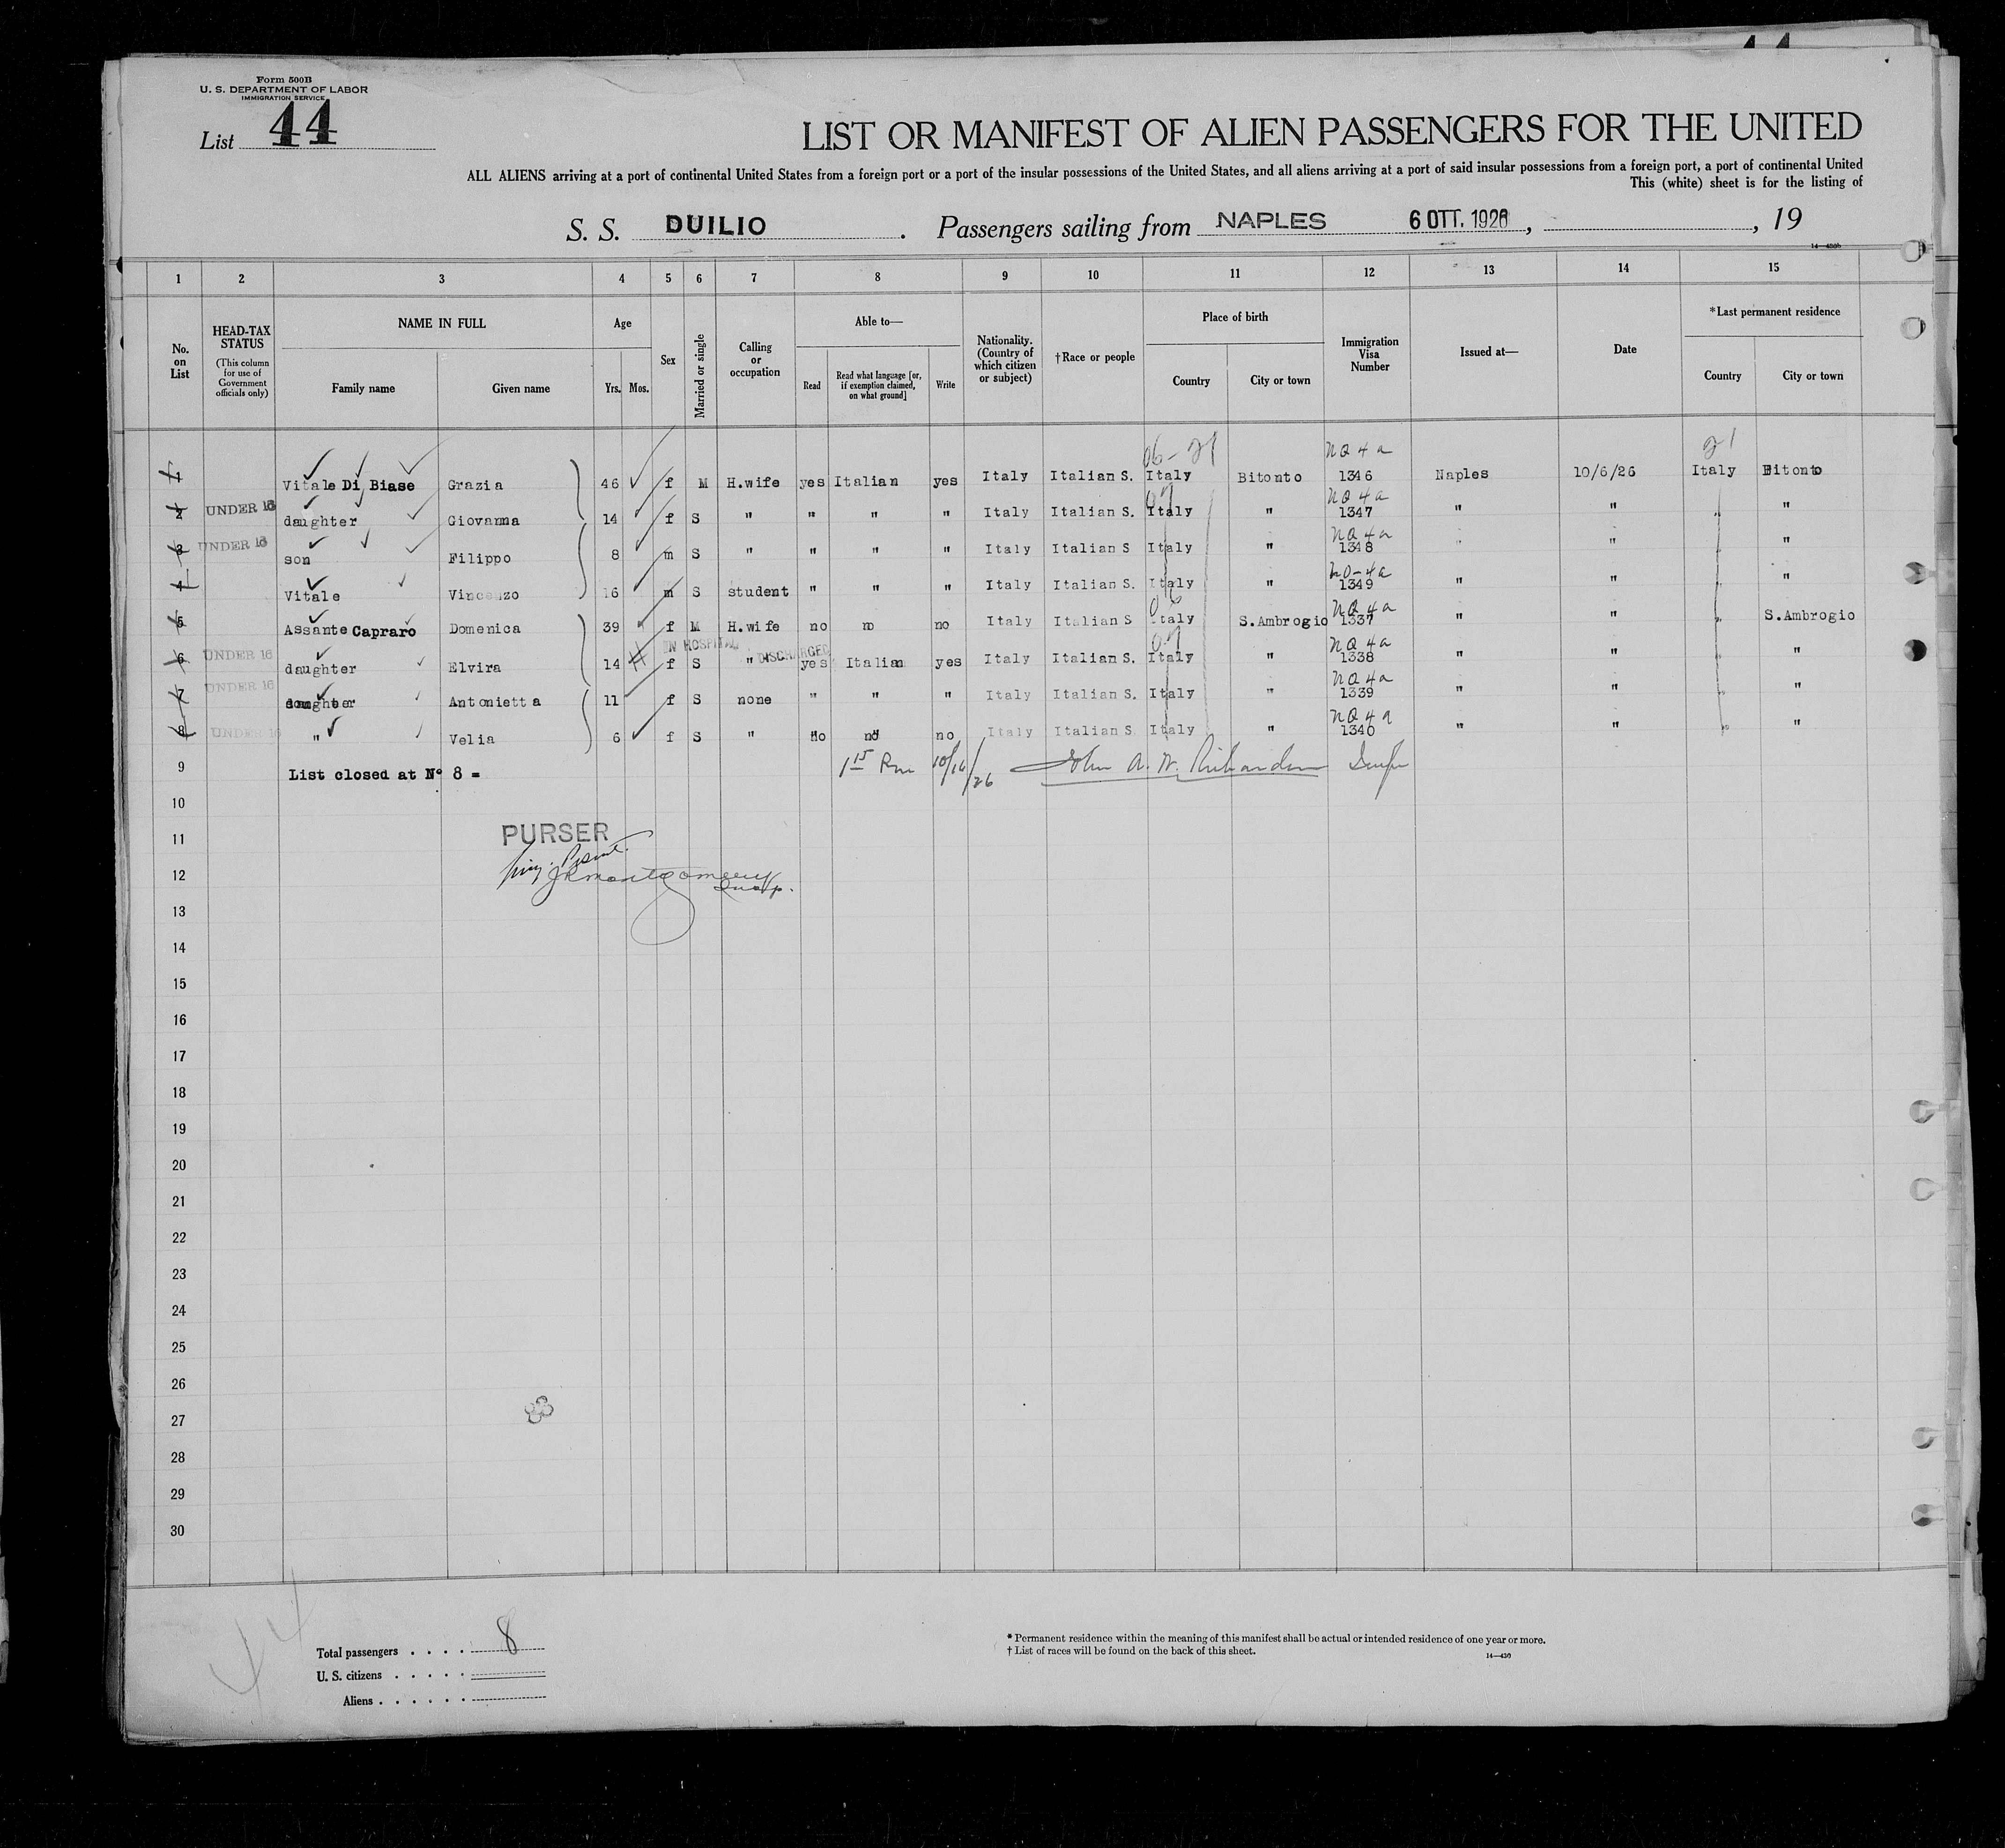 Form 500B
U. S. DEPARTMENT OF LABOR
IMMIGRATION SERVICE
List 44
LIST OR MANIFEST OF ALIEN PASSENGERS FOR THE UNITED
ALL ALIENS arriving at a port of continental United States from a foreign port or a port of the insular possessions of the United States, and all aliens arriving at a port of said insular possessions from a foreign port, a port of continental United
This (white) sheet is for the listing of
S. S. DUILIO . Passengers sailing from NAPLES 6 OTT. 1926 , , 19
14—430b
1 2 3 4 5 6 7 8 9 10 11 12 13 14 15
No. on List
HEAD-TAX STATUS (This column for use of Government officials only)
NAME IN FULL
Family name Given name
Age
Yrs. Mos.
Sex
Married or single
Calling or occupation
Able to—
Read Read what language [or, if exemption claimed, on what ground] Write
Nationality. (Country of which citizen or subject)
†Race or people
Place of birth
Country City or town
Immigration Visa Number
Issued at—
Date
*Last permanent residence
Country City or town
06-21 NQ 4 a 21
1 Vitale Di Biase Grazia 46 f M H.wife yes Italian yes Italy Italian S. Italy Bitonto 1346 Naples 10/6/26 Italy Bitonto
07 NQ 4 a
2 UNDER 16 daughter Giovanna 14 f S " " " " Italy Italian S. Italy " 1347 " " " "
NQ 4 a
3 UNDER 16 son Filippo 8 m S " " " " Italy Italian S Italy " 1348 " " " "
NQ-4a
4 Vitale Vincenzo 16 m S student " " " Italy Italian S. Italy " 1349 " " " "
06 NQ 4 a
5 Assante Capraro Domenica 39 f M H.wife no no no Italy Italian S Italy S.Ambrogio 1337 " " " S.Ambrogio
IN HOSPITAL DISCHARGED 07 NQ 4 a
6 UNDER 16 daughter Elvira 14 f S " yes Italian yes Italy Italian S. Italy " 1338 " " " "
NQ 4 a
7 UNDER 16 daughter Antonietta 11 f S none " " " Italy Italian S. Italy " 1339 " " " "
NQ 4 a
8 UNDER 16 " Velia 6 f S " no no no Italy Italian S. Italy " 1340 " " " "
9 List closed at N° 8 = 10/16/26 John A. W. Richardson
10
11 PURSER
12 JR Montgomery Insp.
13
14
15
16
17
18
19
20
21
22
23
24
25
26
27
28
29
30
44
Total passengers . . . . 8
U. S. citizens . . . . .
Aliens . . . . . .
* Permanent residence within the meaning of this manifest shall be actual or intended residence of one year or more.
† List of races will be found on the back of this sheet.
14—430